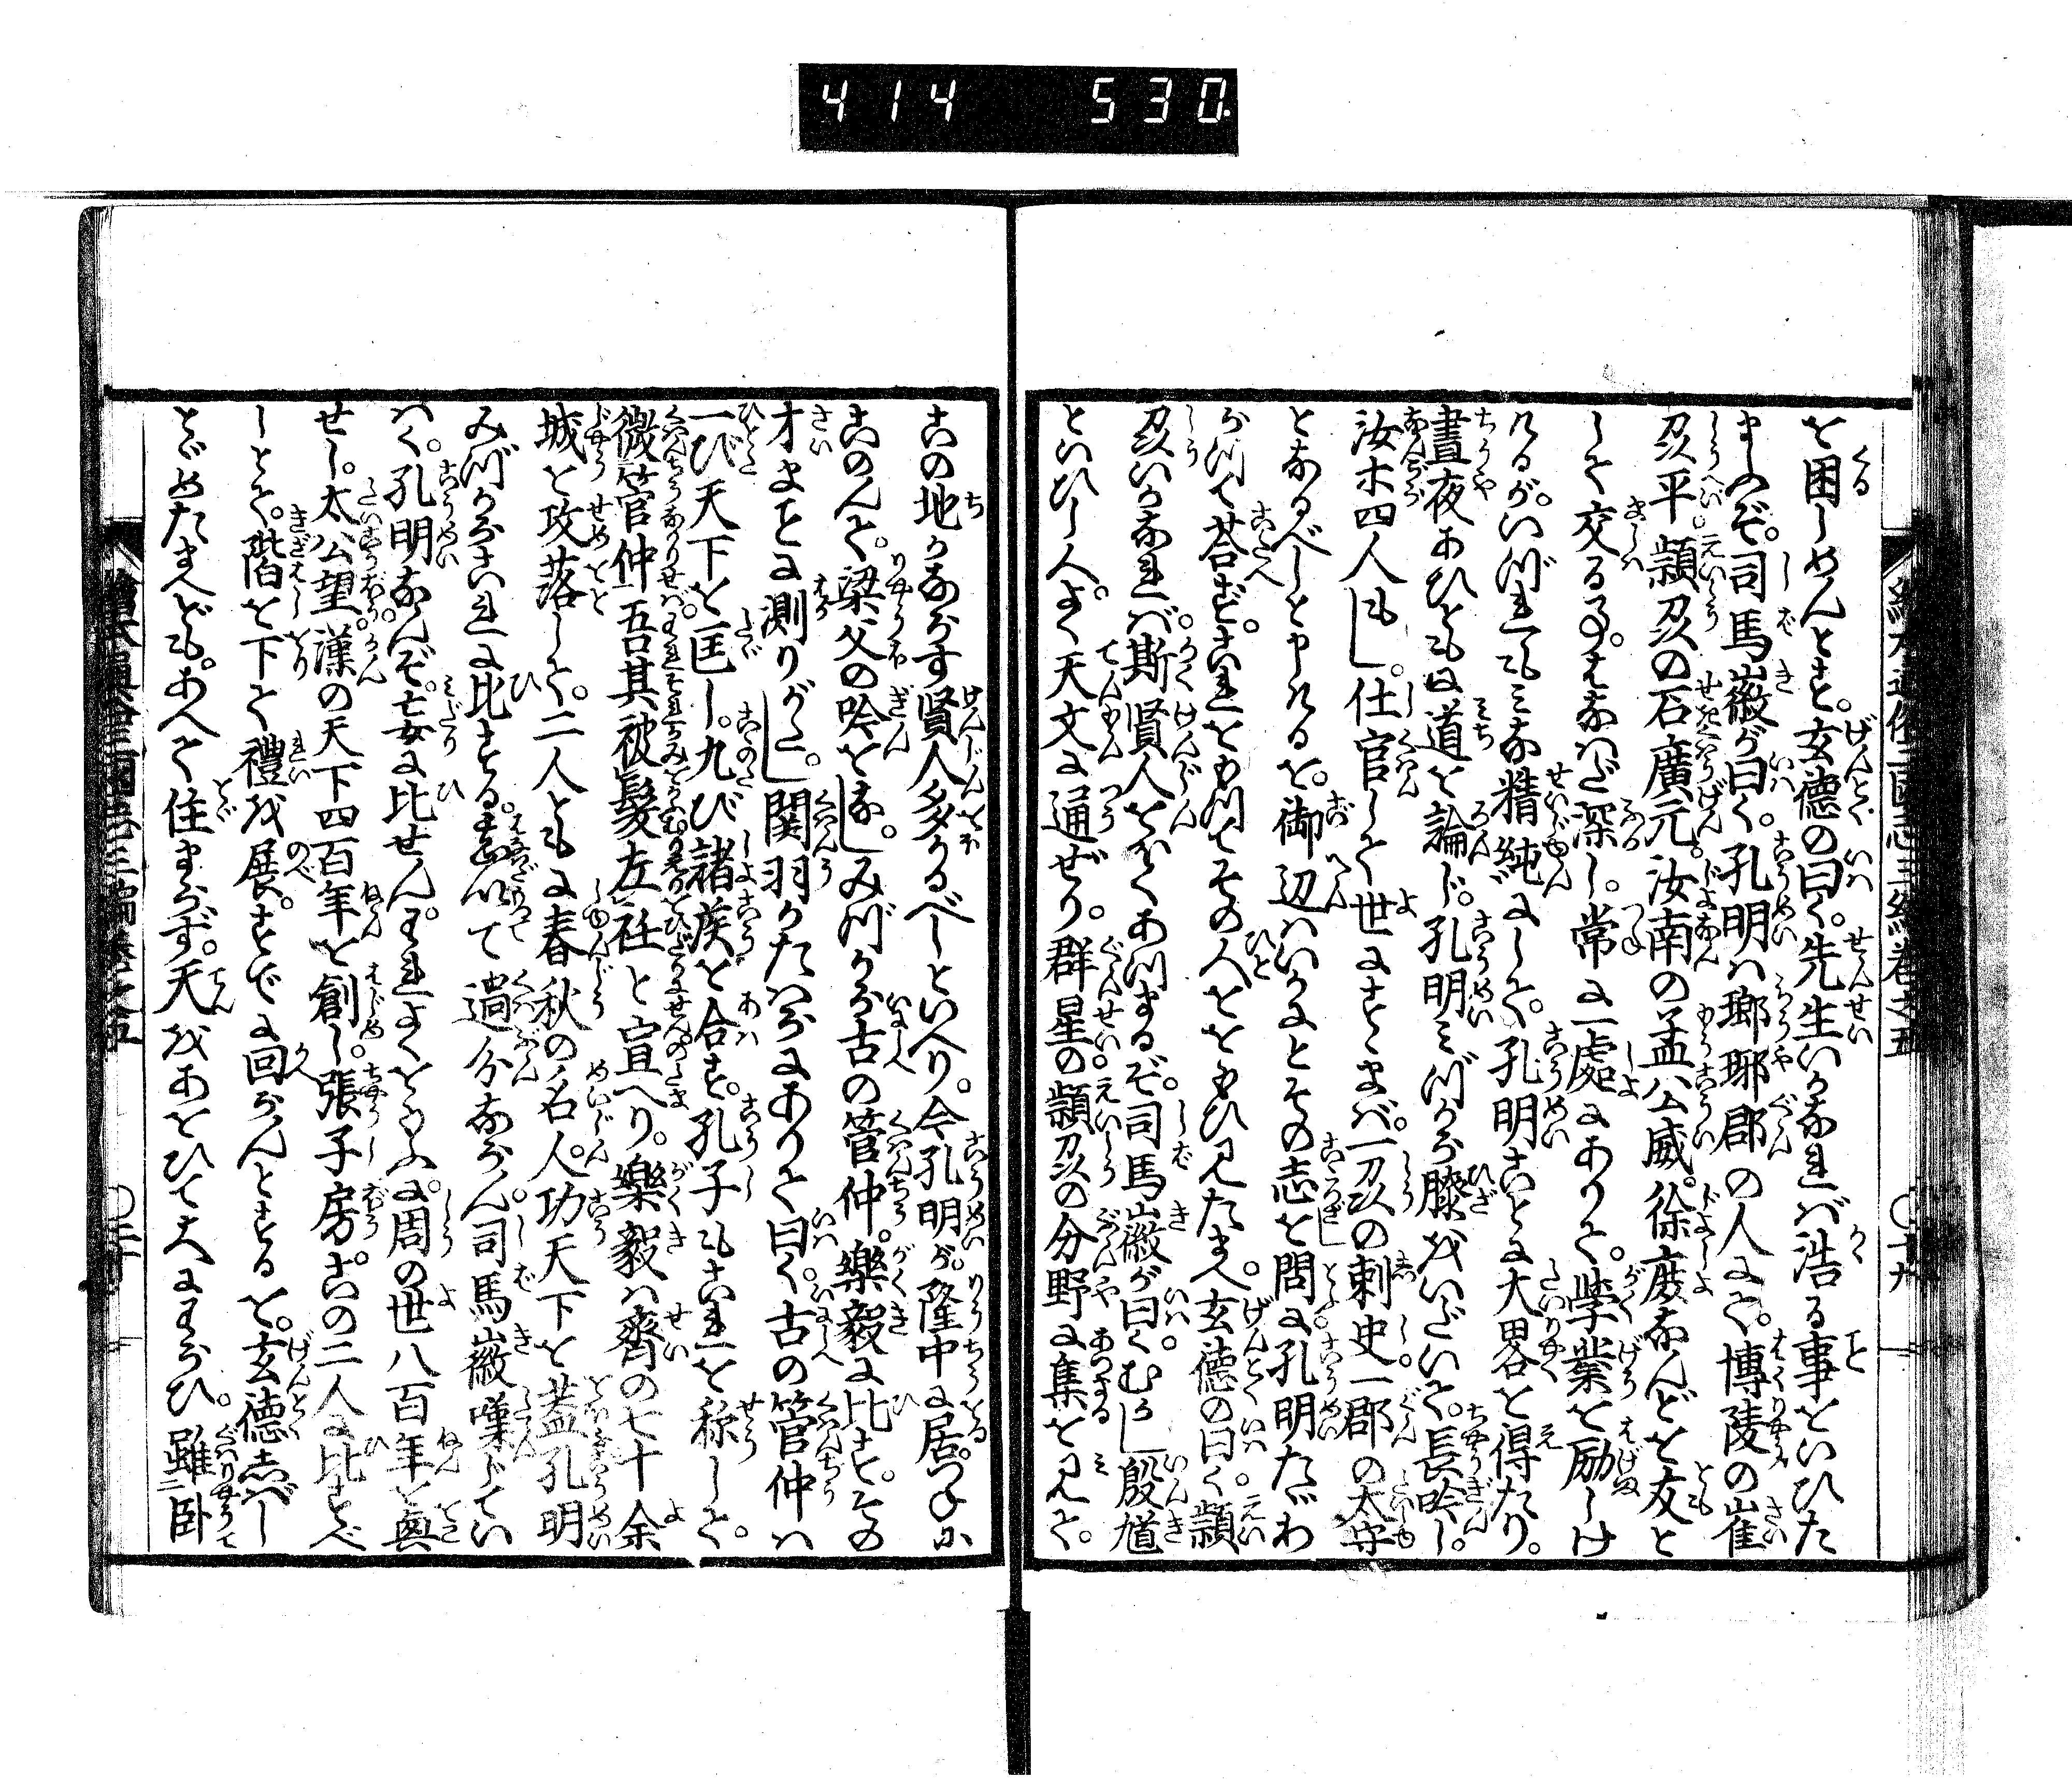 414 530
絵本通俗三國志三編巻之五 〇十九
を困しめんとす。玄徳の曰く。先生いかなれバ浩る事をいひた
まふぞ。司馬徽が曰く。孔明ハ瑯琊郡の人にて。博陵の崔
州平。頴州の石廣元。汝南の孟公威。徐庶なんどを友と
して交る事。はなハだ深し。常に一處にありて。学業を励しけ
るが。いづれもミな精純にして。孔明ことに大畧を得たり。
晝夜あひともに道を論じ。孔明ミづから膝をいだいて。長吟し。
汝等四人もし。仕官して世にすゝまバ。一州の刺史一郡の太守
となるべしと申けるを。御辺ハいかにとその志を問に孔明たゞわ
らつて荅ず。これをもつてその人をおもひ見たまへ。玄徳の曰く。頴
州いかなれバ。斯賢人をゝくあつまるぞ。司馬徽が曰くむかし殷馗
といひし人。よく天文に通ぜり。群星の頴州の分野に集を見て。
この地かならす賢人多かるべしといへり。今孔明が。隆中に居。つねに
このんで。梁父の吟をなし。みづから古の管仲。樂毅に比す。その
才まことに測りがたし。関羽かたハらにありて曰く。古の管仲ハ
一び天下を匡し。九び諸侯を合す。孔子もこれを称して。
微管仲吾其被髪左衽と宣へり。樂毅ハ齊の七十余
城を攻落して。二人ともに春秋の名人。功天下を蓋孔明
みづからこれに比する。甚以て過分ならん。司馬徽嘆じてい
はく。孔明なんぞ。妄に比せん。われよくおもふに。周の世八百年を興
せし。太公望。漢の天下四百年を創し。張子房。この二人に比すべ
しとて。階を下て禮を展。すでに回らんとするを。玄徳志ばし
とゞめたまへども。あへて住まらず。天をあをひで大にわらひ。雖臥